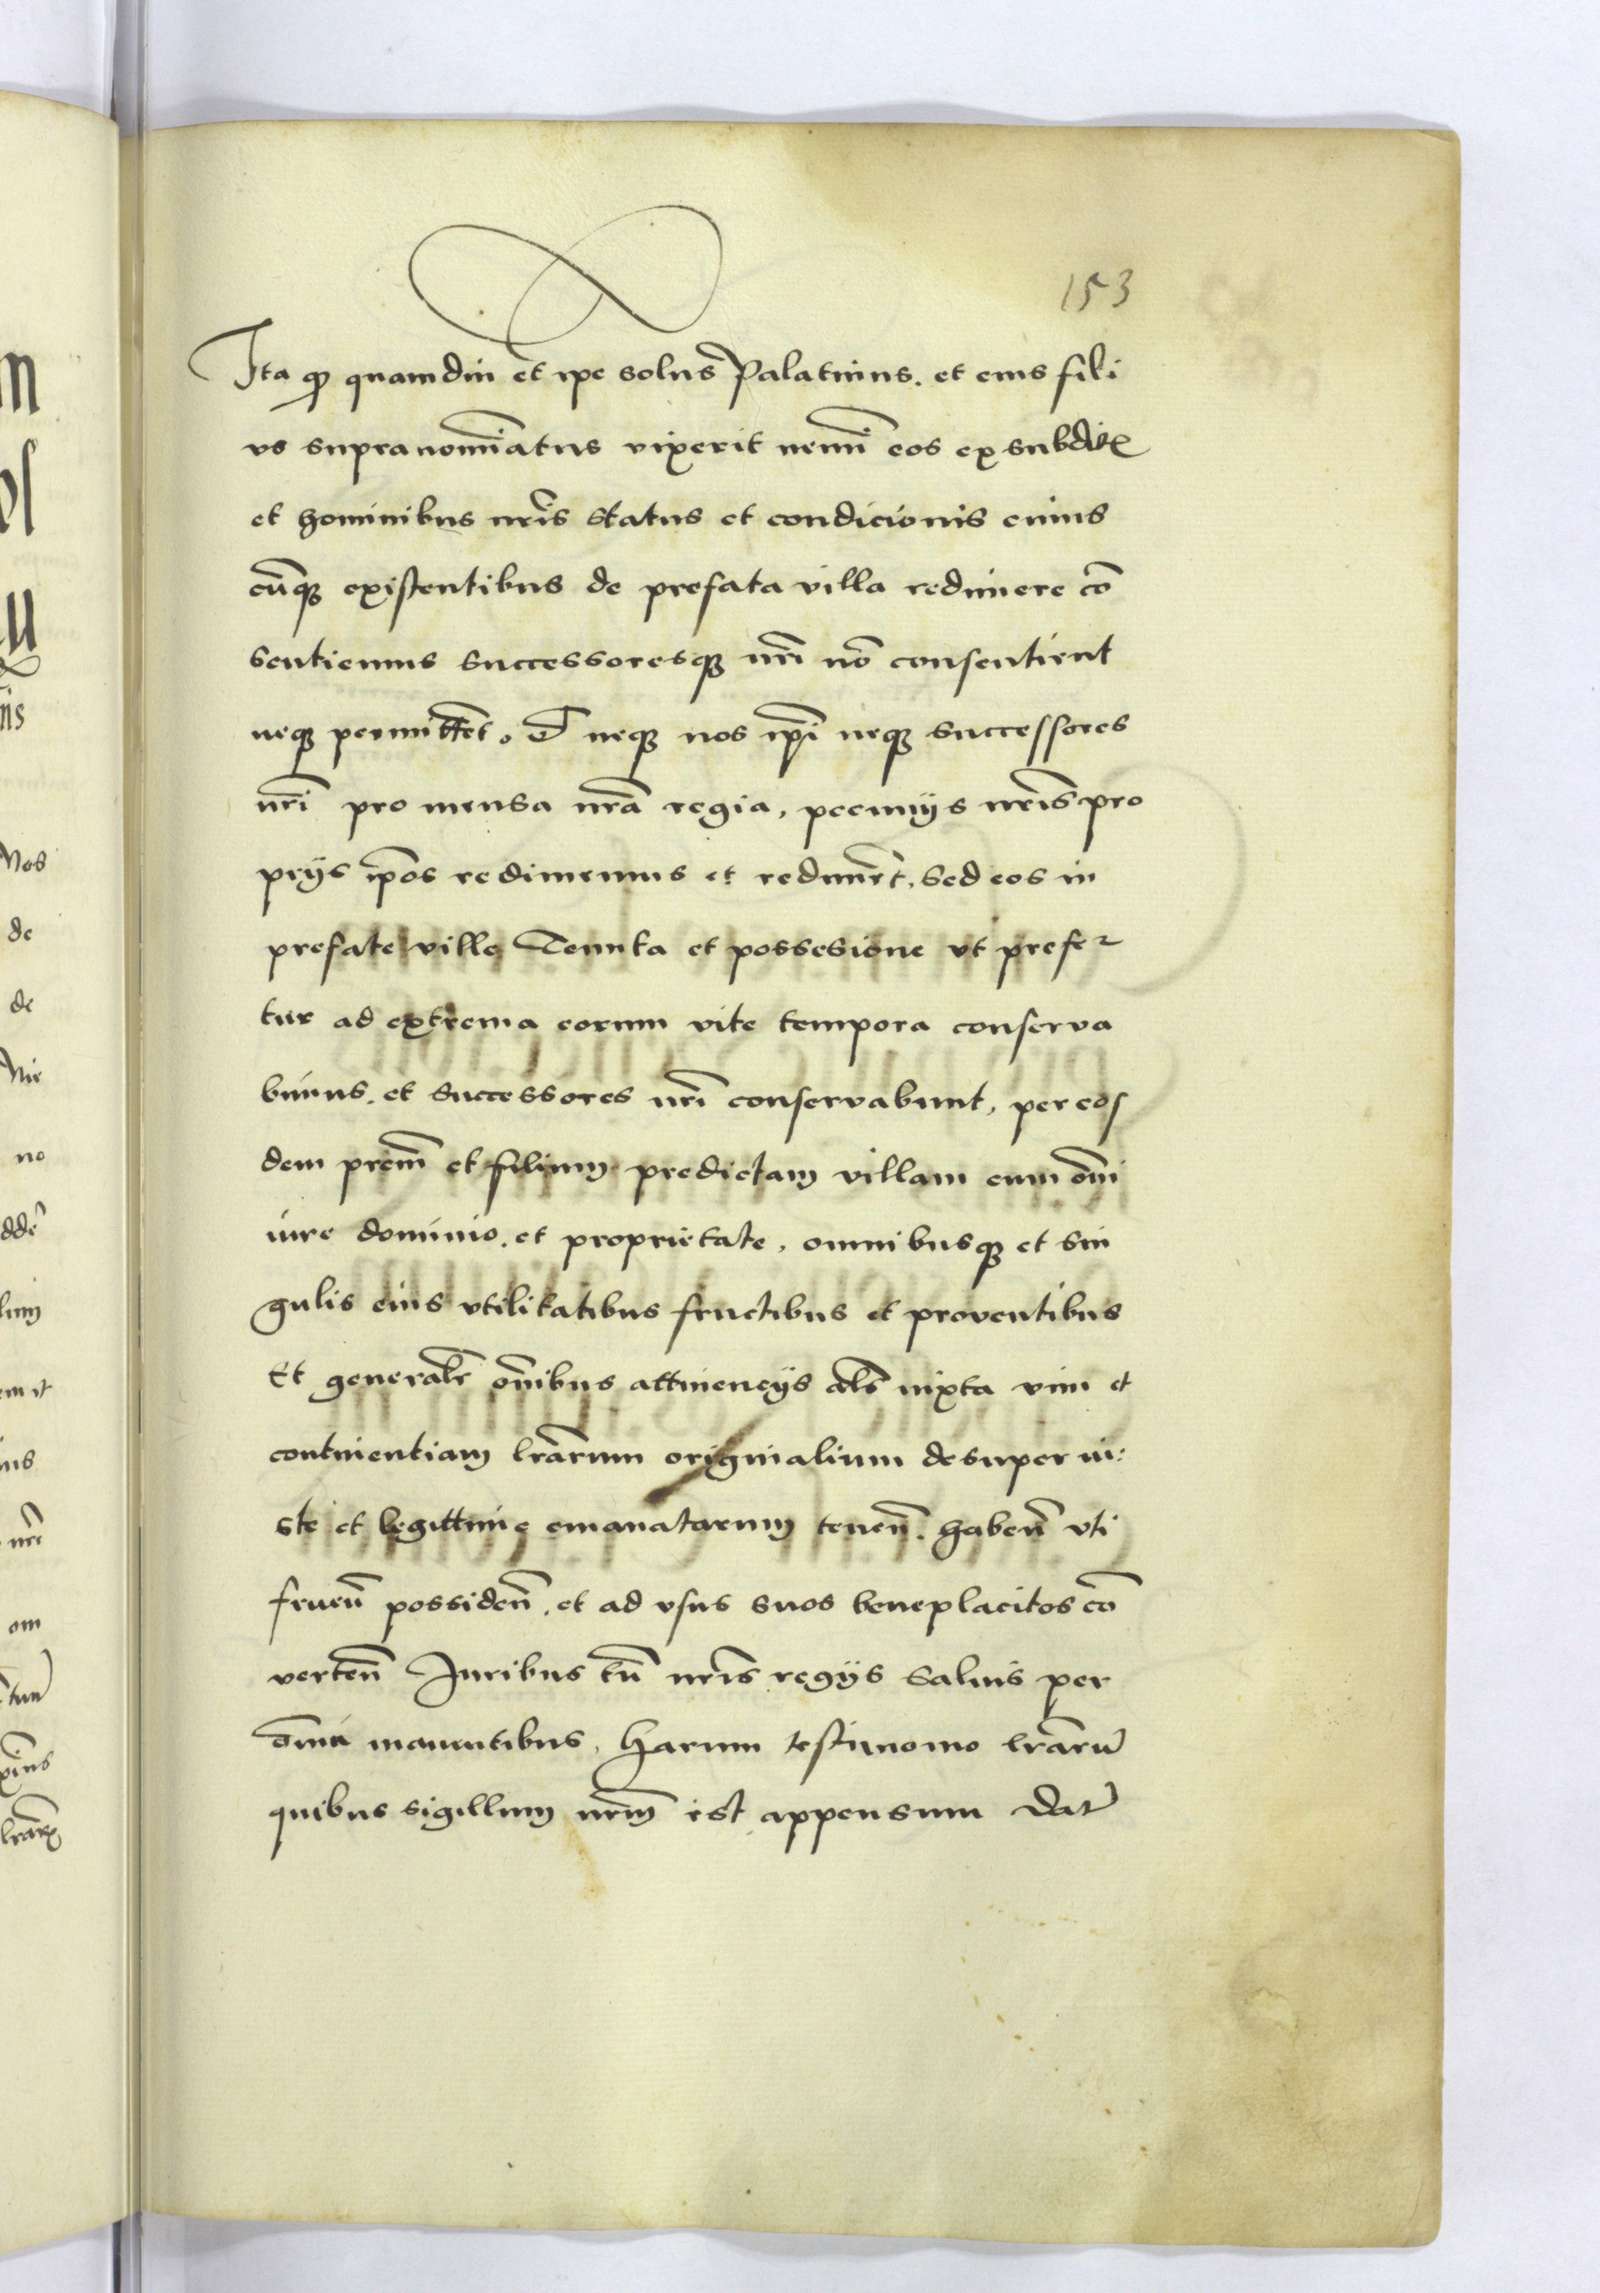 153
Ita qꝫ quamdiu et ipe solus Palatinus. et eius fili
us supranomiatus vixerit nemi͂ eos ex subditꝭ
et hominibus nr͂is status et condicionis cuius
cu͂qꝫ existentibus de prefata villa redimere co͂
sentiemus successoresqꝫ nr͂i no͂ consentient
neqꝫ permitte͂t. neqꝫ nos ip͂i neqꝫ successores
nr͂i pro mensa nr͂a regia, pecunijs nr͂is pro
prijs ip͂os redimemus et redime͂t, sed eos in
prefate ville Tenuta et possesione vt prefer
tur ad extrema eorum vite tempora conserva
bimus. et successores nr͂i conservabunt, per eos
dem pr͂em et filium predictam villam cum om͂i
iure dominio. et proprietate, omnibusqꝫ et sin
gulis eius vtilitatibus fructibus et proventibus
Et general͂r om͂ibus attinencijs al͂s iuxta vim et
continentiam lr͂arum originalium desuper iu:
ste et legittime emanatarum tenen͂. haben͂ vti
fruen͂ possiden͂. et ad vsus suos beneplacitos co͂
verten͂ Iuribus tn͂ nr͂is regijs salvis per
om͂ia manentibus, Harum testimonio lr͂aru͂
quibus sigillum nr͂m est appensum Dat͂